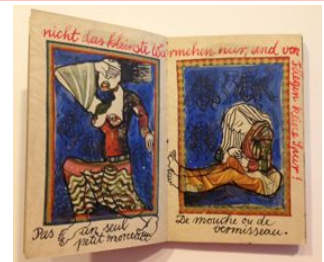 nicht das kleinste Würmchen nur, und von
Fliegen keine Spur!
Pas un seul
petit morceau
De mouche ou de
vermisseau.